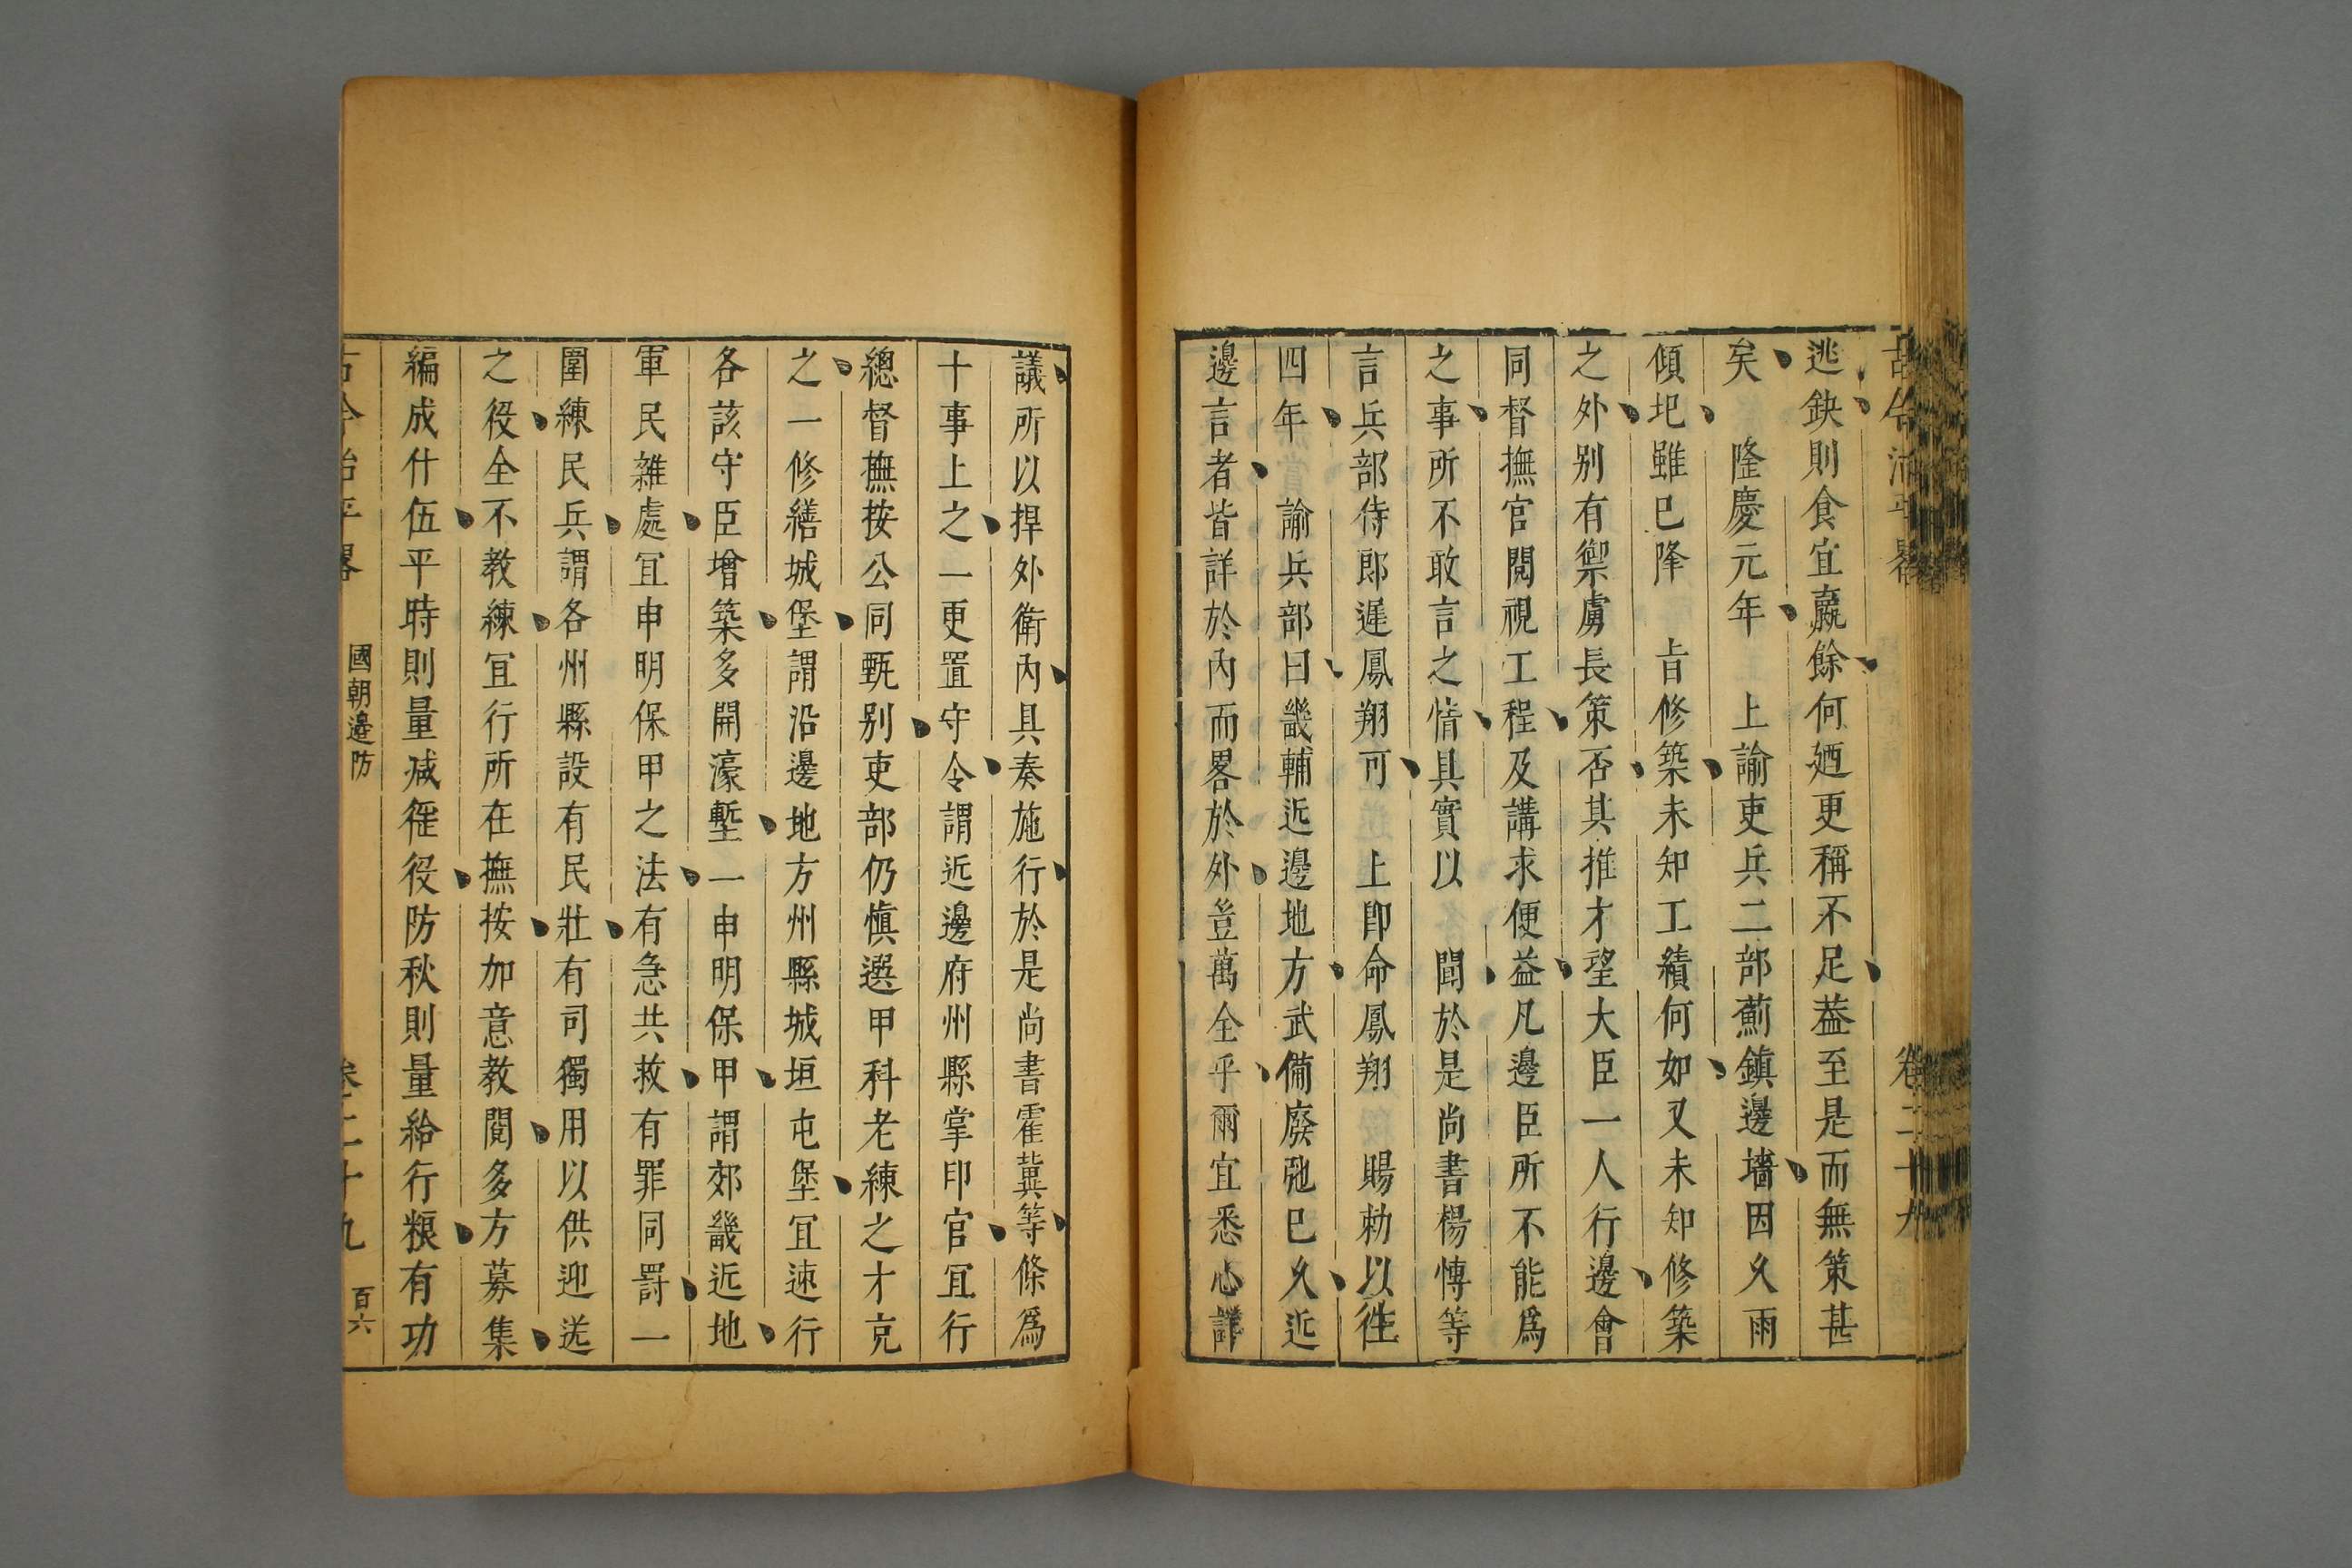 古今治平畧 卷二十九
逃鈌則食宜嬴餘何廼更稱不足葢至是而無策甚
矣 隆慶元年 上諭吏兵二部薊鎮邊墻因久雨
傾圯雖已降 旨修築未知工績何如又未知修築
之外别有禦虜長策否其推才望大臣一人行邊會
同督撫官閱視工程及講求便益凡邊臣所不能爲
之事所不敢言之情具實以 聞於是尚書楊愽等
言兵部侍郎遲鳳翔可 上卽命鳳翔 賜勅以徃
四年 諭兵部曰畿輔近邊地方武備廢弛已久近
邊言者皆詳於內而畧於外豈萬全乎爾宜悉心詳
議所以捍外衛內具奏施行於是尚書霍冀等條爲
十事上之一更置守令謂近邊府州縣掌印官冝行
總督撫按公同甄别吏部仍慎選甲科老練之才克
之一修繕城堡謂沿邊地方州縣城垣屯堡冝速行
各該守臣增築多開濠塹一申明保甲謂郊畿近地
軍民雜處冝申明保甲之法有急共救有罪同罸一
團練民兵謂各州縣設有民壯有司獨用以供迎送
之役全不教練冝行所在撫按加意教閱多方募集
編成什伍平時則量减徭役防秋則量給行糧有功
古今治平畧 國朝邊防 卷二十九 百六